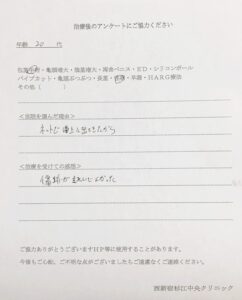 治療後のアンケートにご協力ください
年齢 20 代
包茎手術・亀頭増大・陰茎増大・埋没ペニス・ED・シリコンボール
パイプカット・亀頭ぶつぶつ・長茎・早漏・HARG療法
その他( )
<当院を選んだ理由>
ネットで
<治療を受けての感想>
傷跡が きれいでよかった
ご協力ありがとうございますHP等に使用することがあります。
今後もご心配、ご不明な点がございましたらご遠慮なくご連絡ください。
西新宿杉江中央クリニック